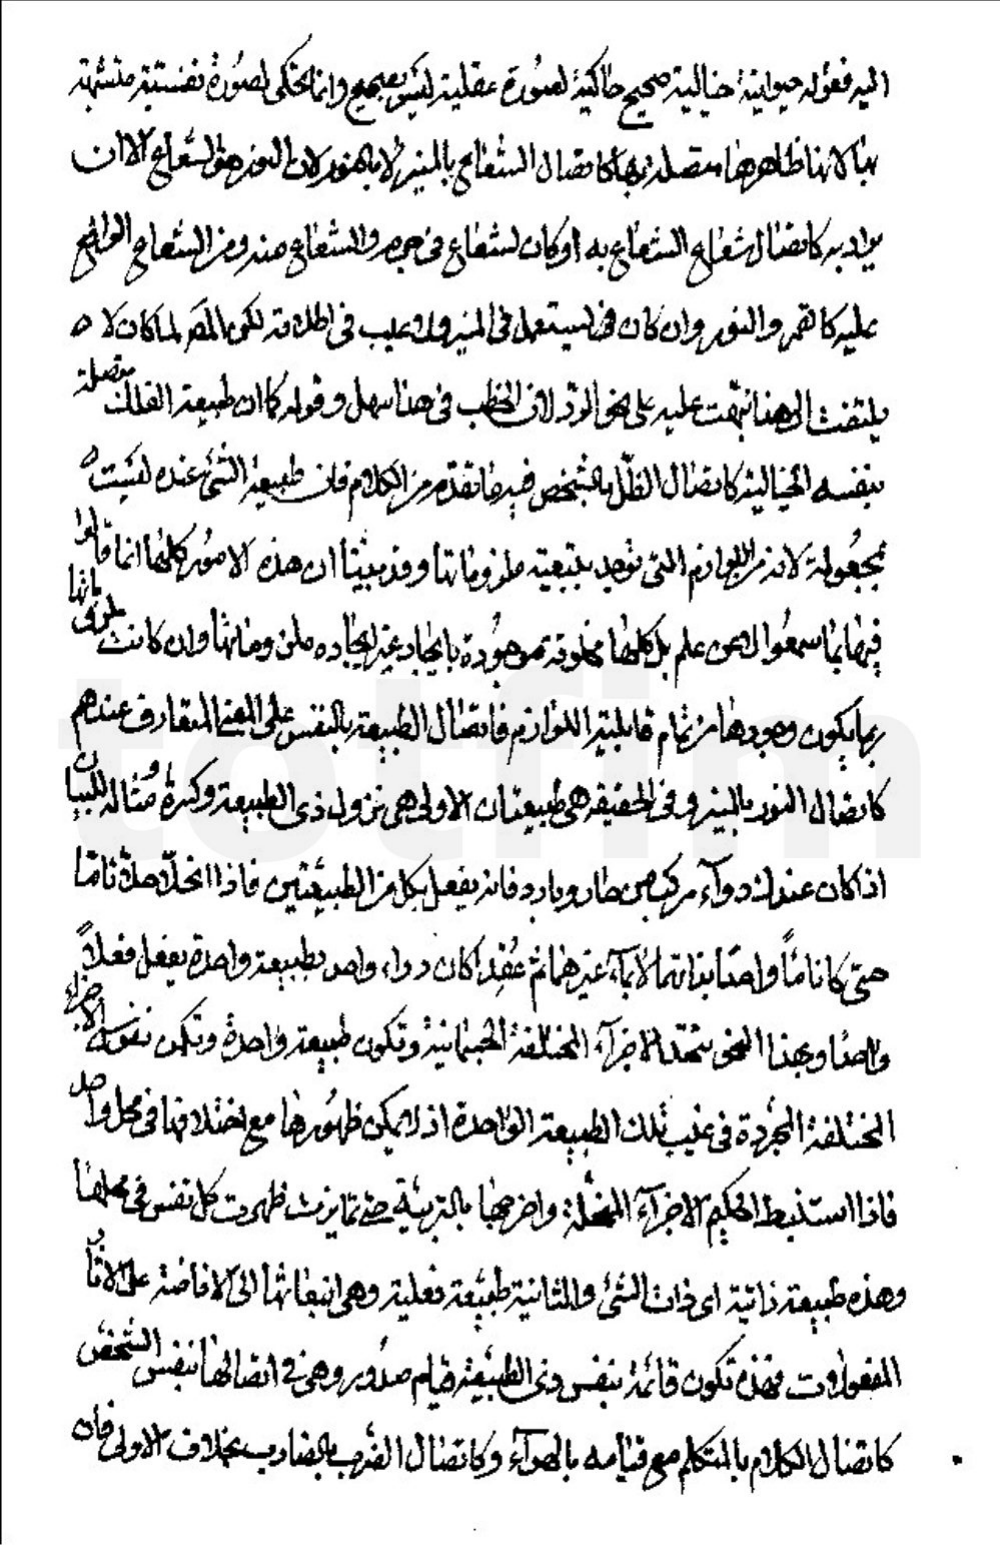 اليه فقوله حيوانية خيالية صحيح حاكية لصورة عقلية ليس بصحيح وانما تحكى لصورة نفسية متشبهة
بها لانها ظاهرها متصلة بها كاتصال الشعاع بالمنير لا بالنور لان النور هو الشعاع الا ان
يراد به كاتصال شعاع الشعاع به او كان لشعاع فى جرم والشعاع منه ومن الشعاع الواقع
عليه كالقمر والنور وان كان قد يستعمل فى المنير ولا عيب فى اطلاقه لكن المصر لما كان لا
يلتفت الى هذا نبهت عليه على نحو الرد لان الخطب فى هذا سهل وقوله كما ان طبيعة الفلك متصلة
بنفسه الخيالية كاتصال الظل بالشخص فيه ما تقدم من الكلام فان طبيعة الشئ عنده ليست
بمجعولة لانه من اللوازم التى توجد بتبعية ملزوماتها وقد بينا ان هذه الامور كلها انما قالوا
فيها بما سمعوا لا عن علم بل كلها مخلوقة موجودة بايجاد غير ايجاده ملزوماتها وان كانت ملزوماتها
بها يكون وجودها من تمام قابلية اللوازم فاتصال الطبيعة بالنفس على المعنى المتعارف عندهم
كاتصال النور بالمنير وفى الحقيقة هى طبيعتان الاولى هى نزول ذى الطبيعة وكبرة ومثاله للبيان
اذا كان عندك دواء مركب من حار وبارد فانه يفعل بكل من الطبيعتين فاذا انحلا حلا تاما
حتى كانا ماءً واحدا بذاتهما لا بماء غيرهما ثم عقدا كان دواء واحد بطبيعة واحدة يفعل فعلاً
واحدا وبهذا النحو تتحد الاجزاء المختلفة الجسمانية وتكون طبيعة واحدة وتكون نفوس الاجزاء
المختلفة المجردة فى غيب تلك الطبيعة الواحدة اذ لا يمكن ظهورها مع اختلافها فى محل واحد
فاذا استنبط الحكيم الاجزاء المنحلة واخرجها بالتربية حتى تمايزت ظهرت كل نفس فى محلها
وهذه طبيعة ذاتية اى ذات الشئ والثانية طبيعة فعلية وهى انبعاثها الى الافاضة على الاثار
المفعولات فهذه تكون قائمة بنفس ذى الطبيعة قيام صدور وهى فى اتصالها بنفس الشخص
كاتصال الكلام بالمتكلم مع قيامه بالهواء وكاتصال الضرب بالضارب بخلاف الاولى فان